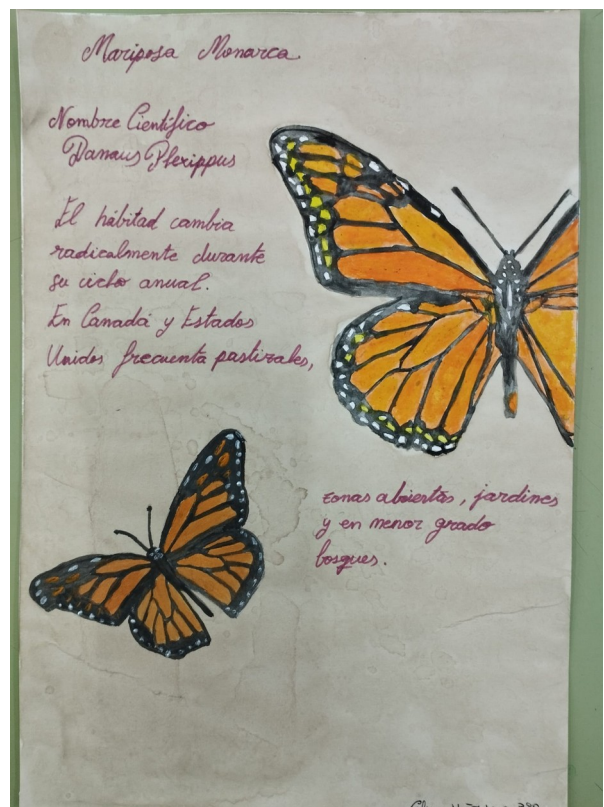 Mariposa Monarca
Nombre Científico
Danaus Plexippus
El hábitad cambia
radicalmente durante
su ciclo anual.
En Canadá y Estados
Unidos frecuenta pastizales,
zonas abiertas, jardines
y en menor grado
bosques.